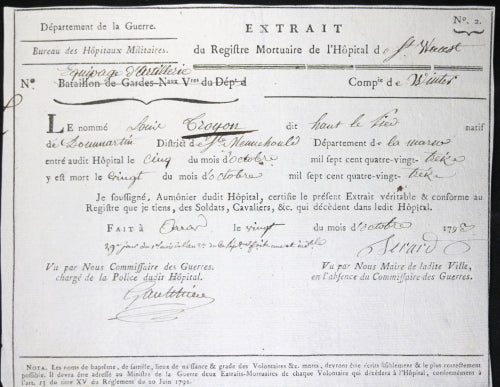 N°. 2.
Département de la Guerre.
Bureau des Hôpitaux Militaires.
EXTRAIT
du Registre Mortuaire de l'Hôpital de St Vincent
Equipage d'artillerie
N° Bataillon de Gardes-Naux Vres du Dépt d
Compie de Winter
LE nommé Louis Croyon dit haut le pied natif
de Dommartin District de Ste Mennehould Département de la marne
entré audit Hôpital le Cinq du mois d'octobre mil sept cent quatre-vingt-treize
y est mort le vingt du mois d'octobre mil sept cent quatre-vingt-treize
Je soussigné, Aumônier dudit Hôpital, certifie le présent Extrait véritable & conforme au
Registre que je tiens, des Soldats, Cavaliers, &c. qui décèdent dans ledit Hôpital.
FAIT à le vingt du mois d'octobre 1793
29e jour du
Vu par Nous Commissaire des Guerres.
chargé de la Police dudit Hôpital.
Vu par Nous Maire de ladite Ville,
en l'absence du Commissaire des Guerres.
NOTA. Les noms de baptême, de famille, lieux de naissance & grade des Volontaires &c. morts, devront être écrits lisiblement & le plus correctement
possible. Il devra être adressé au Ministre de la Guerre deux Extraits-Mortuaires de chaque Volontaire qui décédera à l'Hôpital, conformément à
l'art. 13 du titre XV du Règlement du 20 Juin 1792.